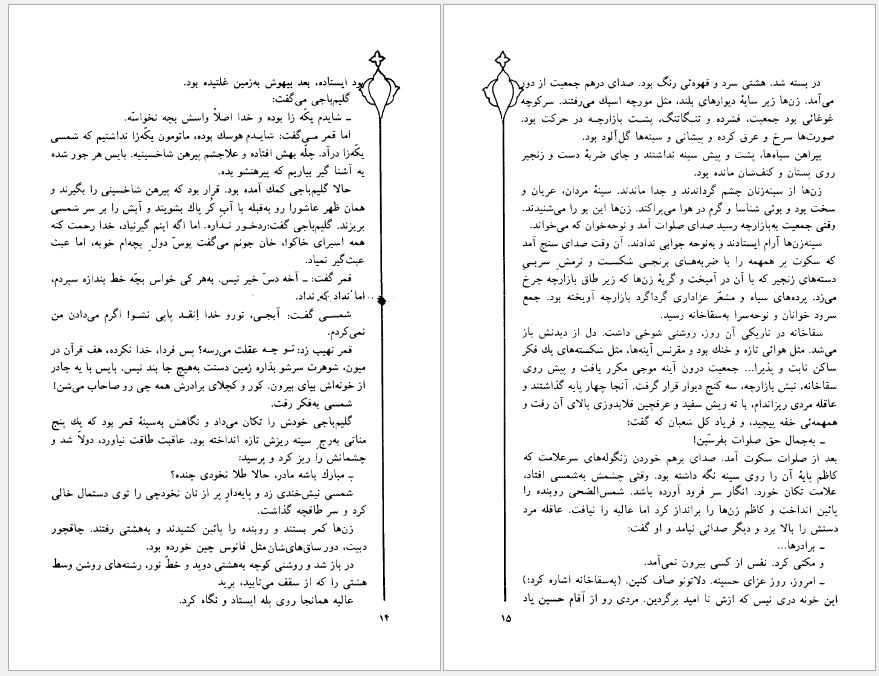 بود ایستاده، بعد بیهوش به‌زمین غلتیده بود.
گلیم‌باجی می‌گفت:
ـ شایدم یکّه زا بوده و خدا اصلاً واسش بچه نخواسّه.
اما قمر مـی‌گفت: شایـدم هوسك بوده، ماتومون یكّه‌زا نداشتیم که شمسی
یکّه‌زا درآد. چلّه بهش افتاده و علاجشم پیرهن شاخسینیه. بایس هر جور شده
یه آشنا گیر بیاریم که پیرهنشو بده.
حالا گلیم‌باجی کمك آمده بود. قرار بود که پیرهن شاخسینی را بگیرند و
همان ظهر عاشورا رو به‌قبله با آب کُر پاك بشویند و آبش را بر سر شمسی
بریزند. گلیم‌باجی گفت:ردخـور نـداره. اما اگه اینم گیرنیاد، خدا رحمت کنه
همه اسیرای خاکوا، خان جونم می‌گفت پوسّ دول بچه‌ام خوبه، اما عیث
عیث‌گیر نمیاد.
قمر گفت: ـ آخه دسّ خیر نیس. به‌هر کی خواس بچّه خط بندازه سپردم،
اما نداد که نداد.
شمسـی گفـت: آبجـی، تورو خدا اِنقـد پاپی نشـو! اگرم می‌دادن من
نمی‌کردم.
قمر نهیب زد: تــو چــه عقلت می‌رسه؟ پس فردا، خدا نکرده، هف قرآن در
میون، شوهرت سرشو بذاره زمین دستت به‌هیچ جا بند نیس. بایس با یه چادر
از خونه‌اش بیای بیرون. کور و کچلای برادرش همه چی رو صاحاب می‌شن!
شمسی به‌فکر رفت.
گلیم‌باجی خودش را تکان می‌داد و نگاهش به‌سینهٔ قمر بود که یك پنج
مناتی به‌رج سینه ریزش تازه انداخته بود. عاقبت طاقت نیاورد، دولاّ شد و
چشمانش را ریز کرد و پرسید:
ـ مبارك باشه مادر، حالا طلا نخودی چنده؟
شمسی نیش‌خندی زد و پایه‌دارِ پر از نان نخودچی را توی دستمال خالی
کرد و سر طاقچه گذاشت.
زن‌ها کمر بستند و روبنده را پائین کشیدند و به‌هشتی رفتند. چاقچور
دبیت، دور ساق‌های‌شان مثل فانوس چین خورده بود.
در باز شد و روشنی کوچه به‌هشتی دوید و خطّ نور، رشته‌های روشن وسط
هشتی را که از سقف می‌تابید، برید
عالیه همانجا روی پله ایستاد و نگاه کرد.
۱۴
در بسته شد. هشتی سرد و قهوه‌ئی رنگ بود. صدای درهم جمعیت از دور
می‌آمد. زن‌ها زیر سایهٔ دیوارهای بلند، مثل مورچه اسبك می‌رفتند. سرکوچه
غوغائی بود جمعیت، فشرده و تنـگاتنگ، پشـت بازارچـه در حرکت بود.
صورت‌ها سرخ و عرق کرده و پیشانی و سینه‌ها گل‌آلود بود.
پیراهن سیاه‌ها، پشت و پیش سینه نداشتند و جای ضربهٔ دست و زنجیر
روی پستان و کتف‌شان مانده بود.
زن‌ها از سینه‌زنان چشم گرداندند و جدا ماندند. سینهٔ مردان، عریان و
سخت بود و بوئی شناسا و گرم در هوا می‌پراکند. زن‌ها این بو را می‌شنیدند.
وقتی جمعیت به‌بازارچه رسید صدای صلوات آمد و نوحه‌خوان که می‌خواند.
سینه‌زن‌ها آرام ایستادند و به‌نوحه جوابی ندادند. آن وقت صدای سنج آمد
که سکوت پر همهمه را با ضربه‌هـای برنجـی شکسـت و نرمشِ سربـی
دسته‌های زنجیر که با آن در آمیخت و گریهٔ زن‌ها که زیر طاق بازارچه چرخ
می‌زد. پرده‌های سیاه و مشعّر عزاداری گرداگرد بازارچه آویخته بود. جمع
سرود خوانان و نوحه‌سرا به‌سقاخانه رسید.
سقاخانه در تاریکی آن روز، روشنی شوخی داشت. دل از دیدنش باز
می‌شد. مثل هوائی تازه و خنك بود و مقرنس آینه‌ها، مثل شکسته‌های یك فکر
ساکن ثابت و پذیرا... جمعیت درون آینه موجی مکرر یافت و پیش روی
سقاخانه، نبش بازارچه، سه کنج دیوار قرار گرفت. آنجا چهار پایه گذاشتند و
عاقله مردی ریزاندام، با ته ریش سفید و عرقچین قلابدوزی بالای آن رفت و
همهمه‌ئی خفه پیچید، و فریاد کل شعبان که گفت:
ـ به‌جمال حق صلوات بفرسّین!
بعد از صلوات سکوت آمد. صدای برهم خوردن زنگوله‌های سرعلامت که
کاظم پایهٔ آن را روی سینه نگه داشته بود. وقتی چشمش به‌شمسی افتاد،
علامت تکان خورد. انگار سر فرود آورده باشد. شمس‌الضحی روبنده را
پائین انداخت و کاظم زن‌ها را برانداز کرد اما عالیه را نیافت. عاقله مرد
دستش را بالا برد و دیگر صدائی نیامد و او گفت:
ـ برادرها...
و مکثی کرد. نفس از کسی بیرون نمی‌آمد.
ـ امروز، روز عزای حسینه. دلاتونو صاف کنین. (به‌سقاخانه اشاره کرد:)
این خونه دری نیس که ازش نا امید برگردین. مردی رو از آقام حسین یاد
۱۵